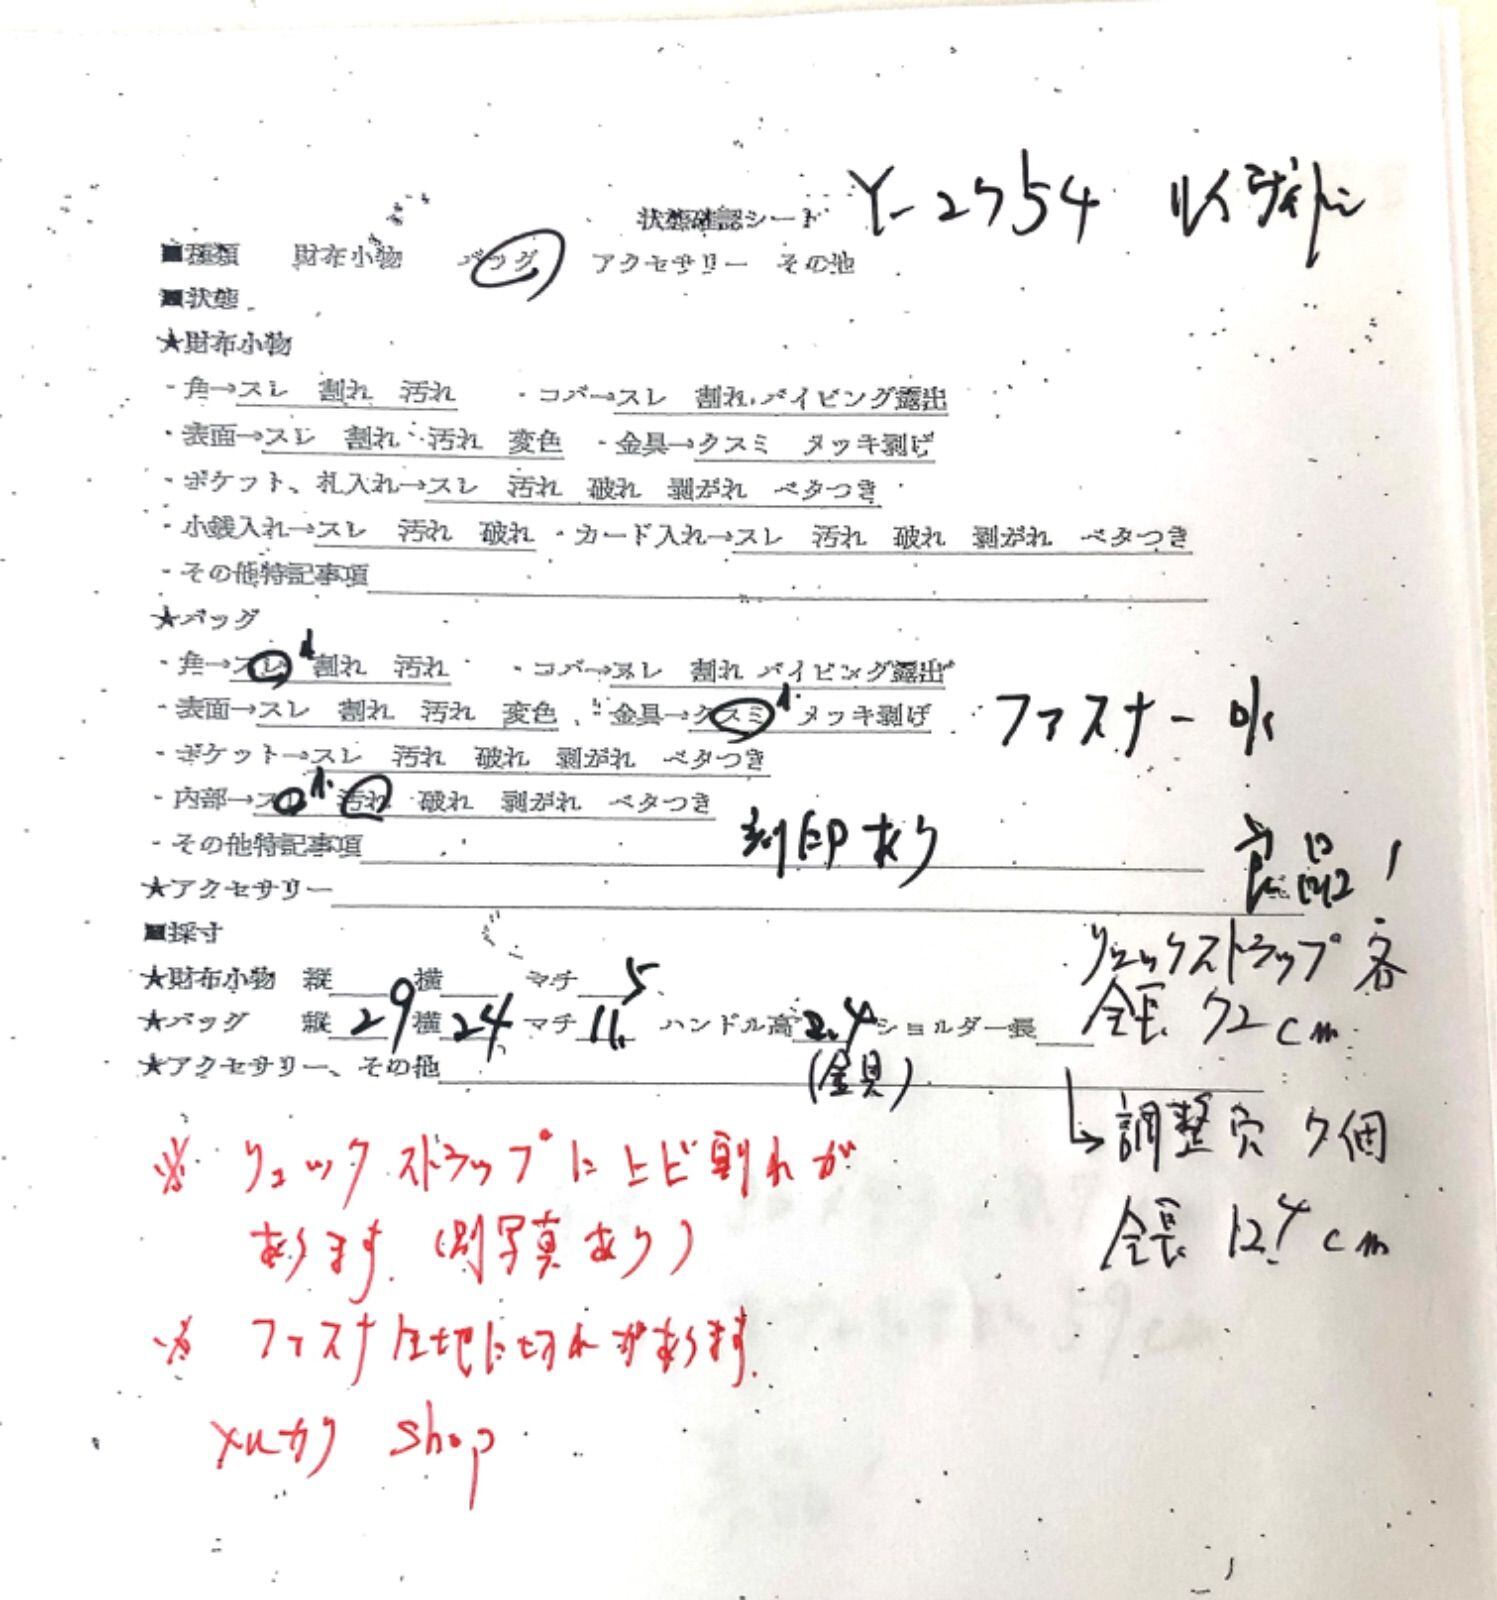 状態確認シート Y-2754 ルイヴィトン
■種類 財布小物 バッグ アクセサリー その他
■状態
★財布小物
・角→スレ 割れ 汚れ ・コバ→スレ 割れ パイピング露出
・表面→スレ 割れ 汚れ 変色 ・金具→クスミ メッキ剥げ
・ポケット、札入れ→スレ 汚れ 破れ 剥がれ ベタつき
・小銭入れ→スレ 汚れ 破れ ・カード入れ→スレ 汚れ 破れ 剥がれ ベタつき
・その他特記事項
★バッグ
・角→スレ 小 割れ 汚れ ・コバ→スレ 割れ パイピング露出
・表面→スレ 割れ 汚れ 変色 ・金具→クスミ 小 メッキ剥げ ファスナー ok
・ポケット→スレ 汚れ 破れ 剥がれ ベタつき
・内部→スレ 小 汚れ 破れ 剥がれ ベタつき
・その他特記事項 刻印あり 良品!
★アクセサリー
■採寸
リュックストラップ 各
★財布小物 縦 横 マチ
全長 72cm
★バッグ 縦 29 横 24 マチ 11.5 ハンドル高 2.4 ショルダー長
(金具)
★アクセサリー、その他
→調整穴 7個
全長 12.4cm
※ リュックストラップにヒビ割れが
あります。(別写真あり)
※ ファスナ生地に切れがあります。
メルカリ shop